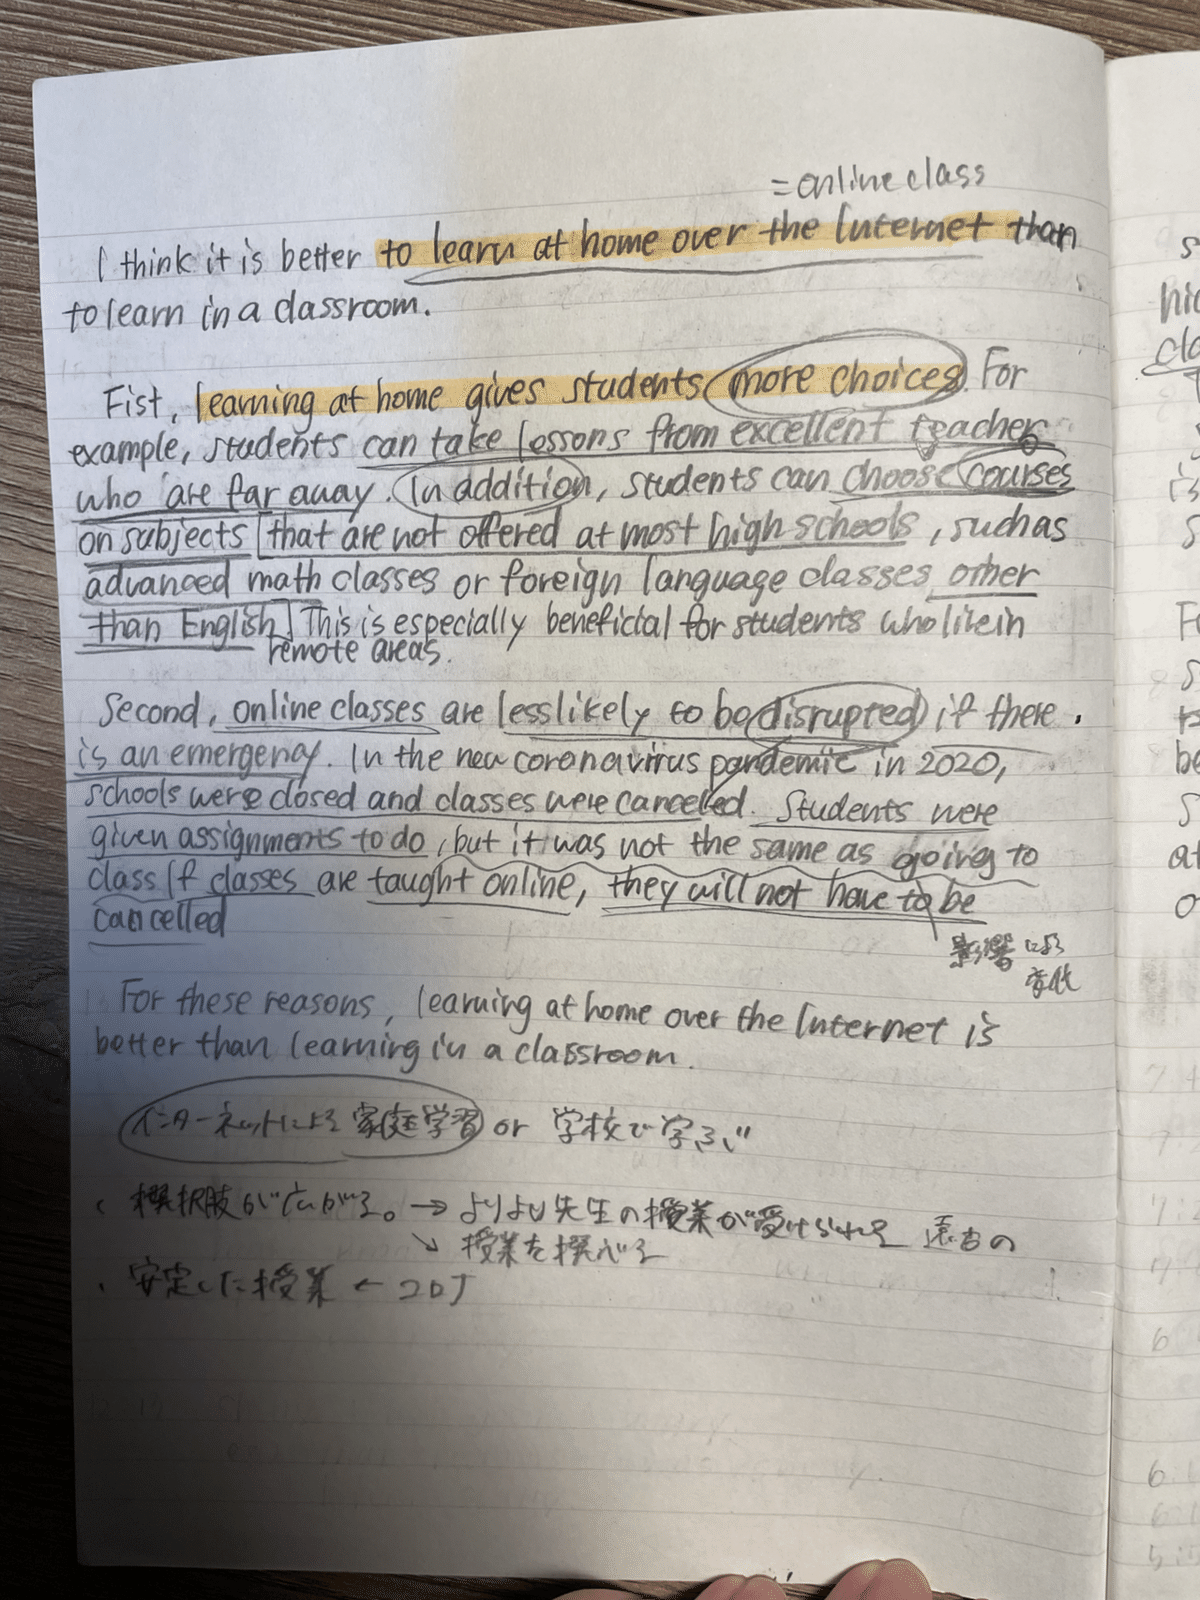 =online class
I think it is better to learn at home over the Internet than
to learn in a classroom.
Fist, learning at home gives students more choices. For
example, students can take lessons from excellent teacher
who are far away. In addition, students can choose courses
on subjects [that are not offered at most high schools, such as
advanced math classes or foreign language classes other
than English] This is especially beneficial for students who live in
remote areas.
Second, online classes are less likely to be disrupted if there
is an emergency. In the new coronavirus pandemic in 2020,
schools were closed and classes were cancelled. Students were
given assignments to do, but it was not the same as going to
class If classes are taught online, they will not have to be
cancelled
影響
For these reasons, learning at home over the Internet is
better than learning in a classroom.
インターネットによる家庭学習 or 学校で学ぶ
・選択肢が広がる。→よりよい先生の授業が受けられる 遠方の
↘ 授業を選べる
・安定した授業 ← コロナ